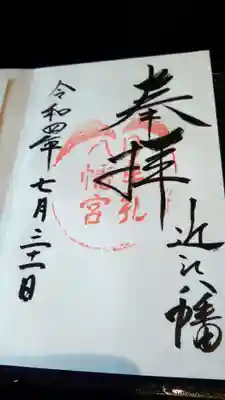 奉拝
近江八幡
八幡宮
令和四年七月三十一日